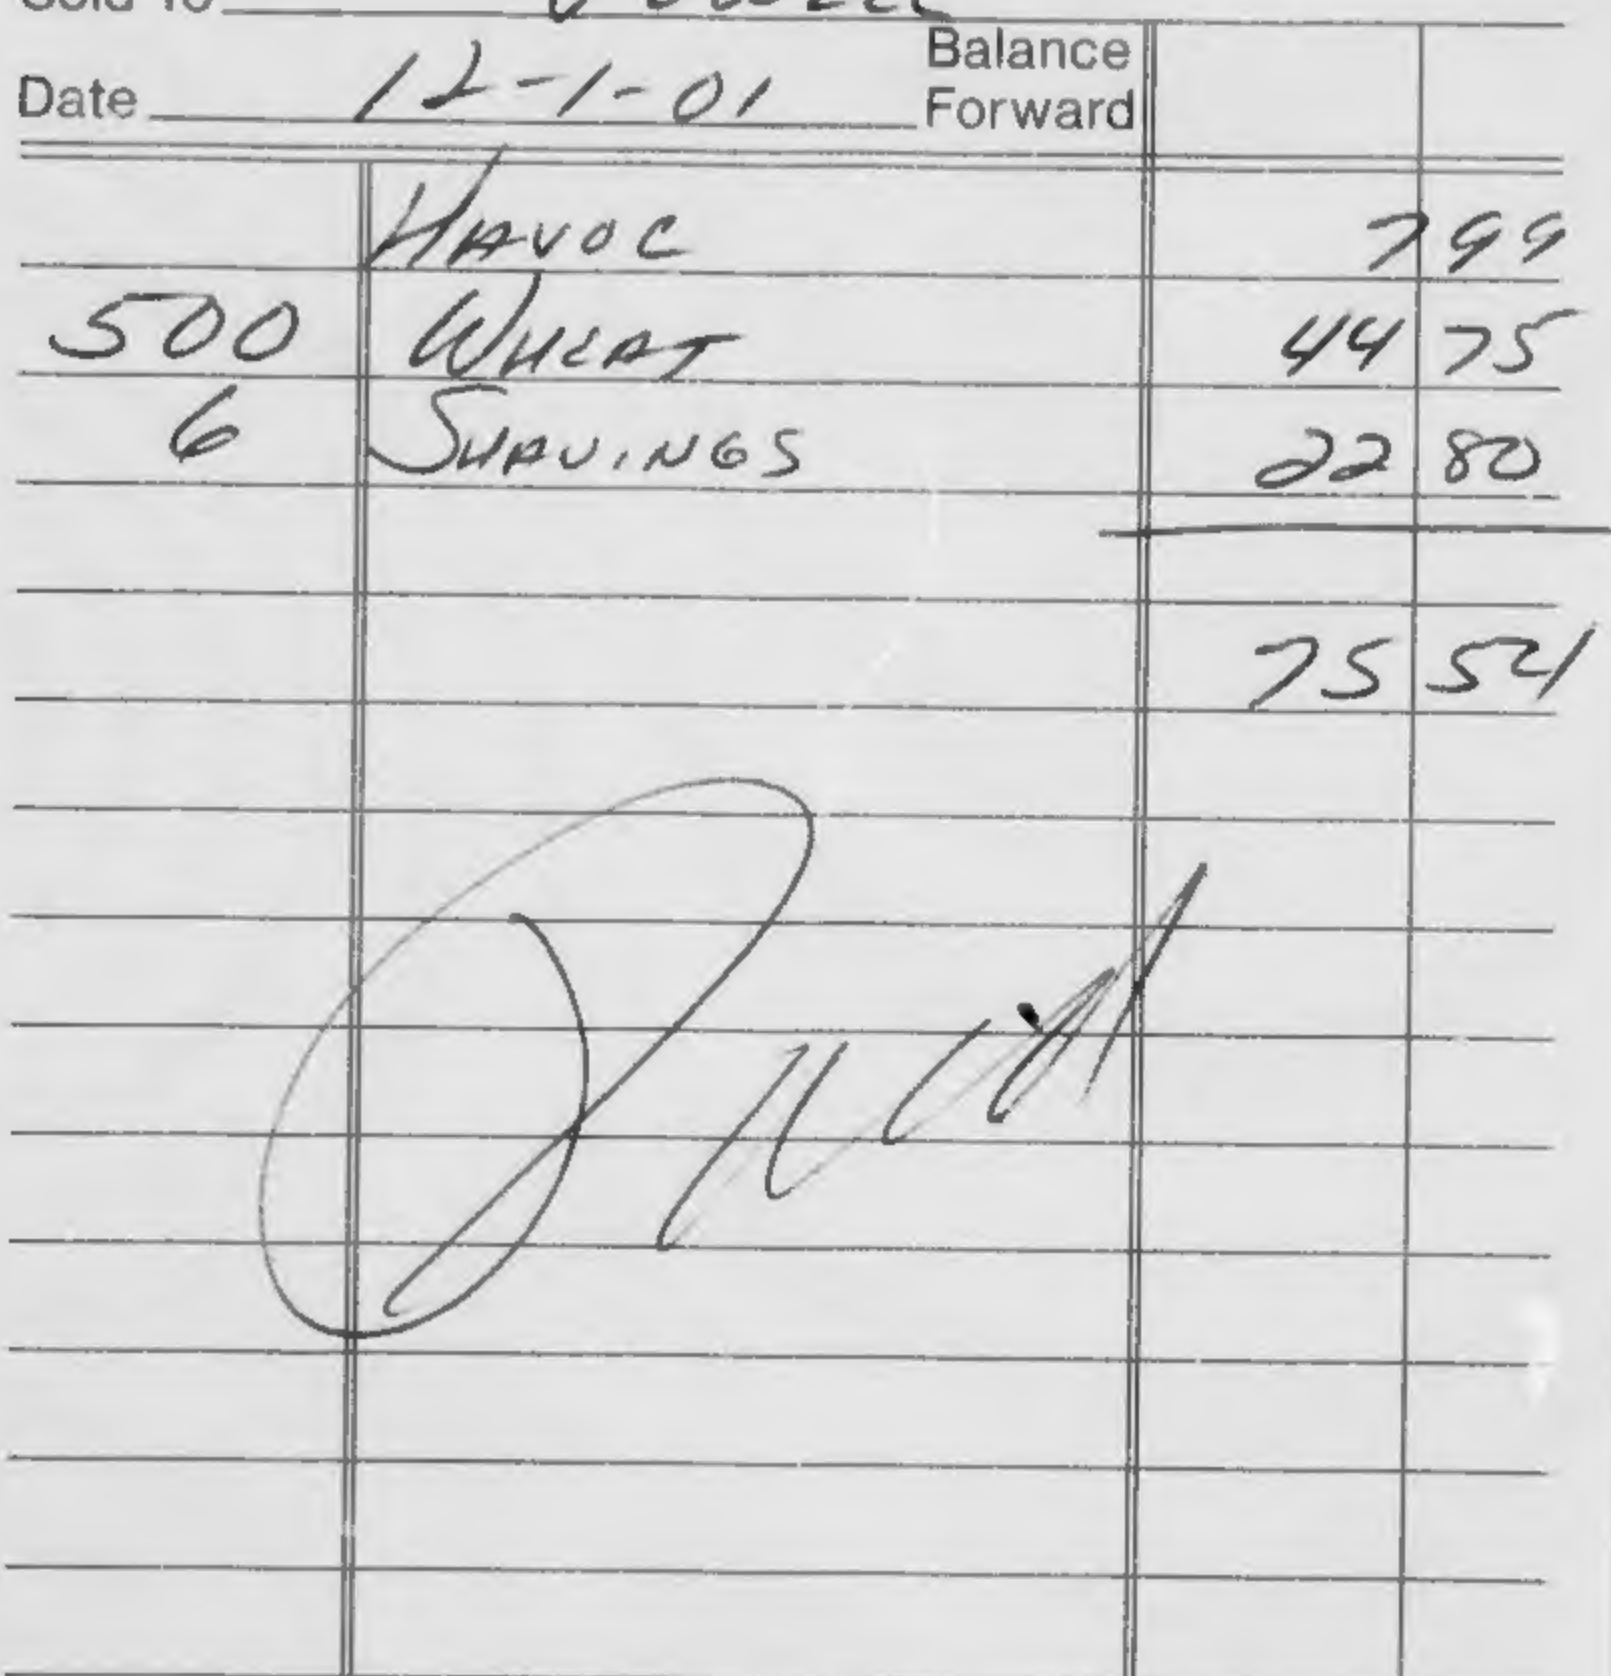 Sold To
Date 12-1-01 Balance Forward
HAVOC 7 99
500 WHEAT 44 75
6 SHAVINGS 22 80
75 54